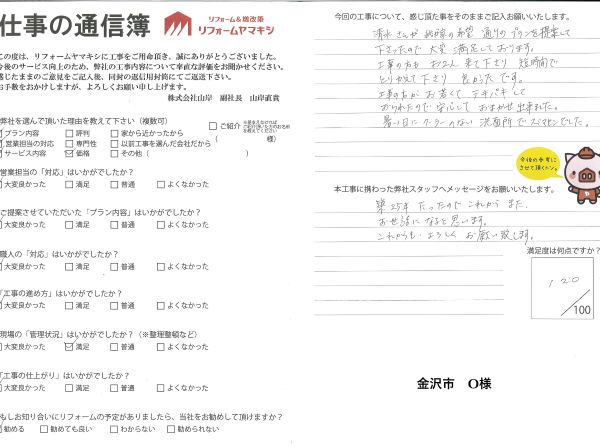 仕事の通信簿
リフォーム&増改築
リフォームヤマキシ
この度は、リフォームヤマキシに工事をご用命頂き、誠にありがとうございました。
今後のサービス向上のため、弊社の工事内容について率直な評価をお聞かせください。
感じたままのご意見をご記入後、同封の返信用封筒にてご返送下さい。
お手数をおかけしますが、よろしくお願い申し上げます。
株式会社山岸 副社長 山岸直貴
弊社を選んで頂いた理由を教えて下さい(複数可)
プラン内容 □評判 □家から近かったから
営業担当の対応 □専門性 □以前工事を選んだ会社だから
サービス内容 ☑価格 □その他(
□ご紹介
( 様)
営業担当の「対応」はいかがでしたか?
大変良かった □満足 □普通 □よくなかった
ご提案させていただいた「プラン内容」はいかがでしたか?
大変良かった □満足 □普通 □よくなかった
職人の「対応」はいかがでしたか?
大変良かった □満足 □普通 □よくなかった
「工事の進め方」はいかがでしたか?
大変良かった □満足 □普通 □よくなかった
現場の「管理状況」はいかがでしたか?(※整理整頓など)
大変良かった ☑満足 □普通 □よくなかった
「工事の仕上がり」はいかがでしたか?
大変良かった □満足 □普通 □よくなかった
もしお知り合いにリフォームの予定がありましたら、当社をお勧めして頂けますか?
勧める □勧めても良い □わからない □勧められない
今回の工事について、感じ頂た事をそのままご記入お願いいたします。
清水さんが 希望 通りのプランを提案して
下さったので 大変 満足しております。
工事の方も お2人 来て下さり 短時間で
とりかえて下さり 良かったです。
工事の方が お若くて テキパキして
おられたので 安心して おまかせ出来ました。
暑い日にクーラーのない 洗面所でスミマセンでした。
今後の参考に
させて頂くトン。
本工事に携わった弊社スタッフへメッセージをお願いいたします。
築25年 たったので これから また
お世話に なると思います。
これからも よろしく お願い致します。
満足度は何点ですか?
120
/100
金沢市 O様